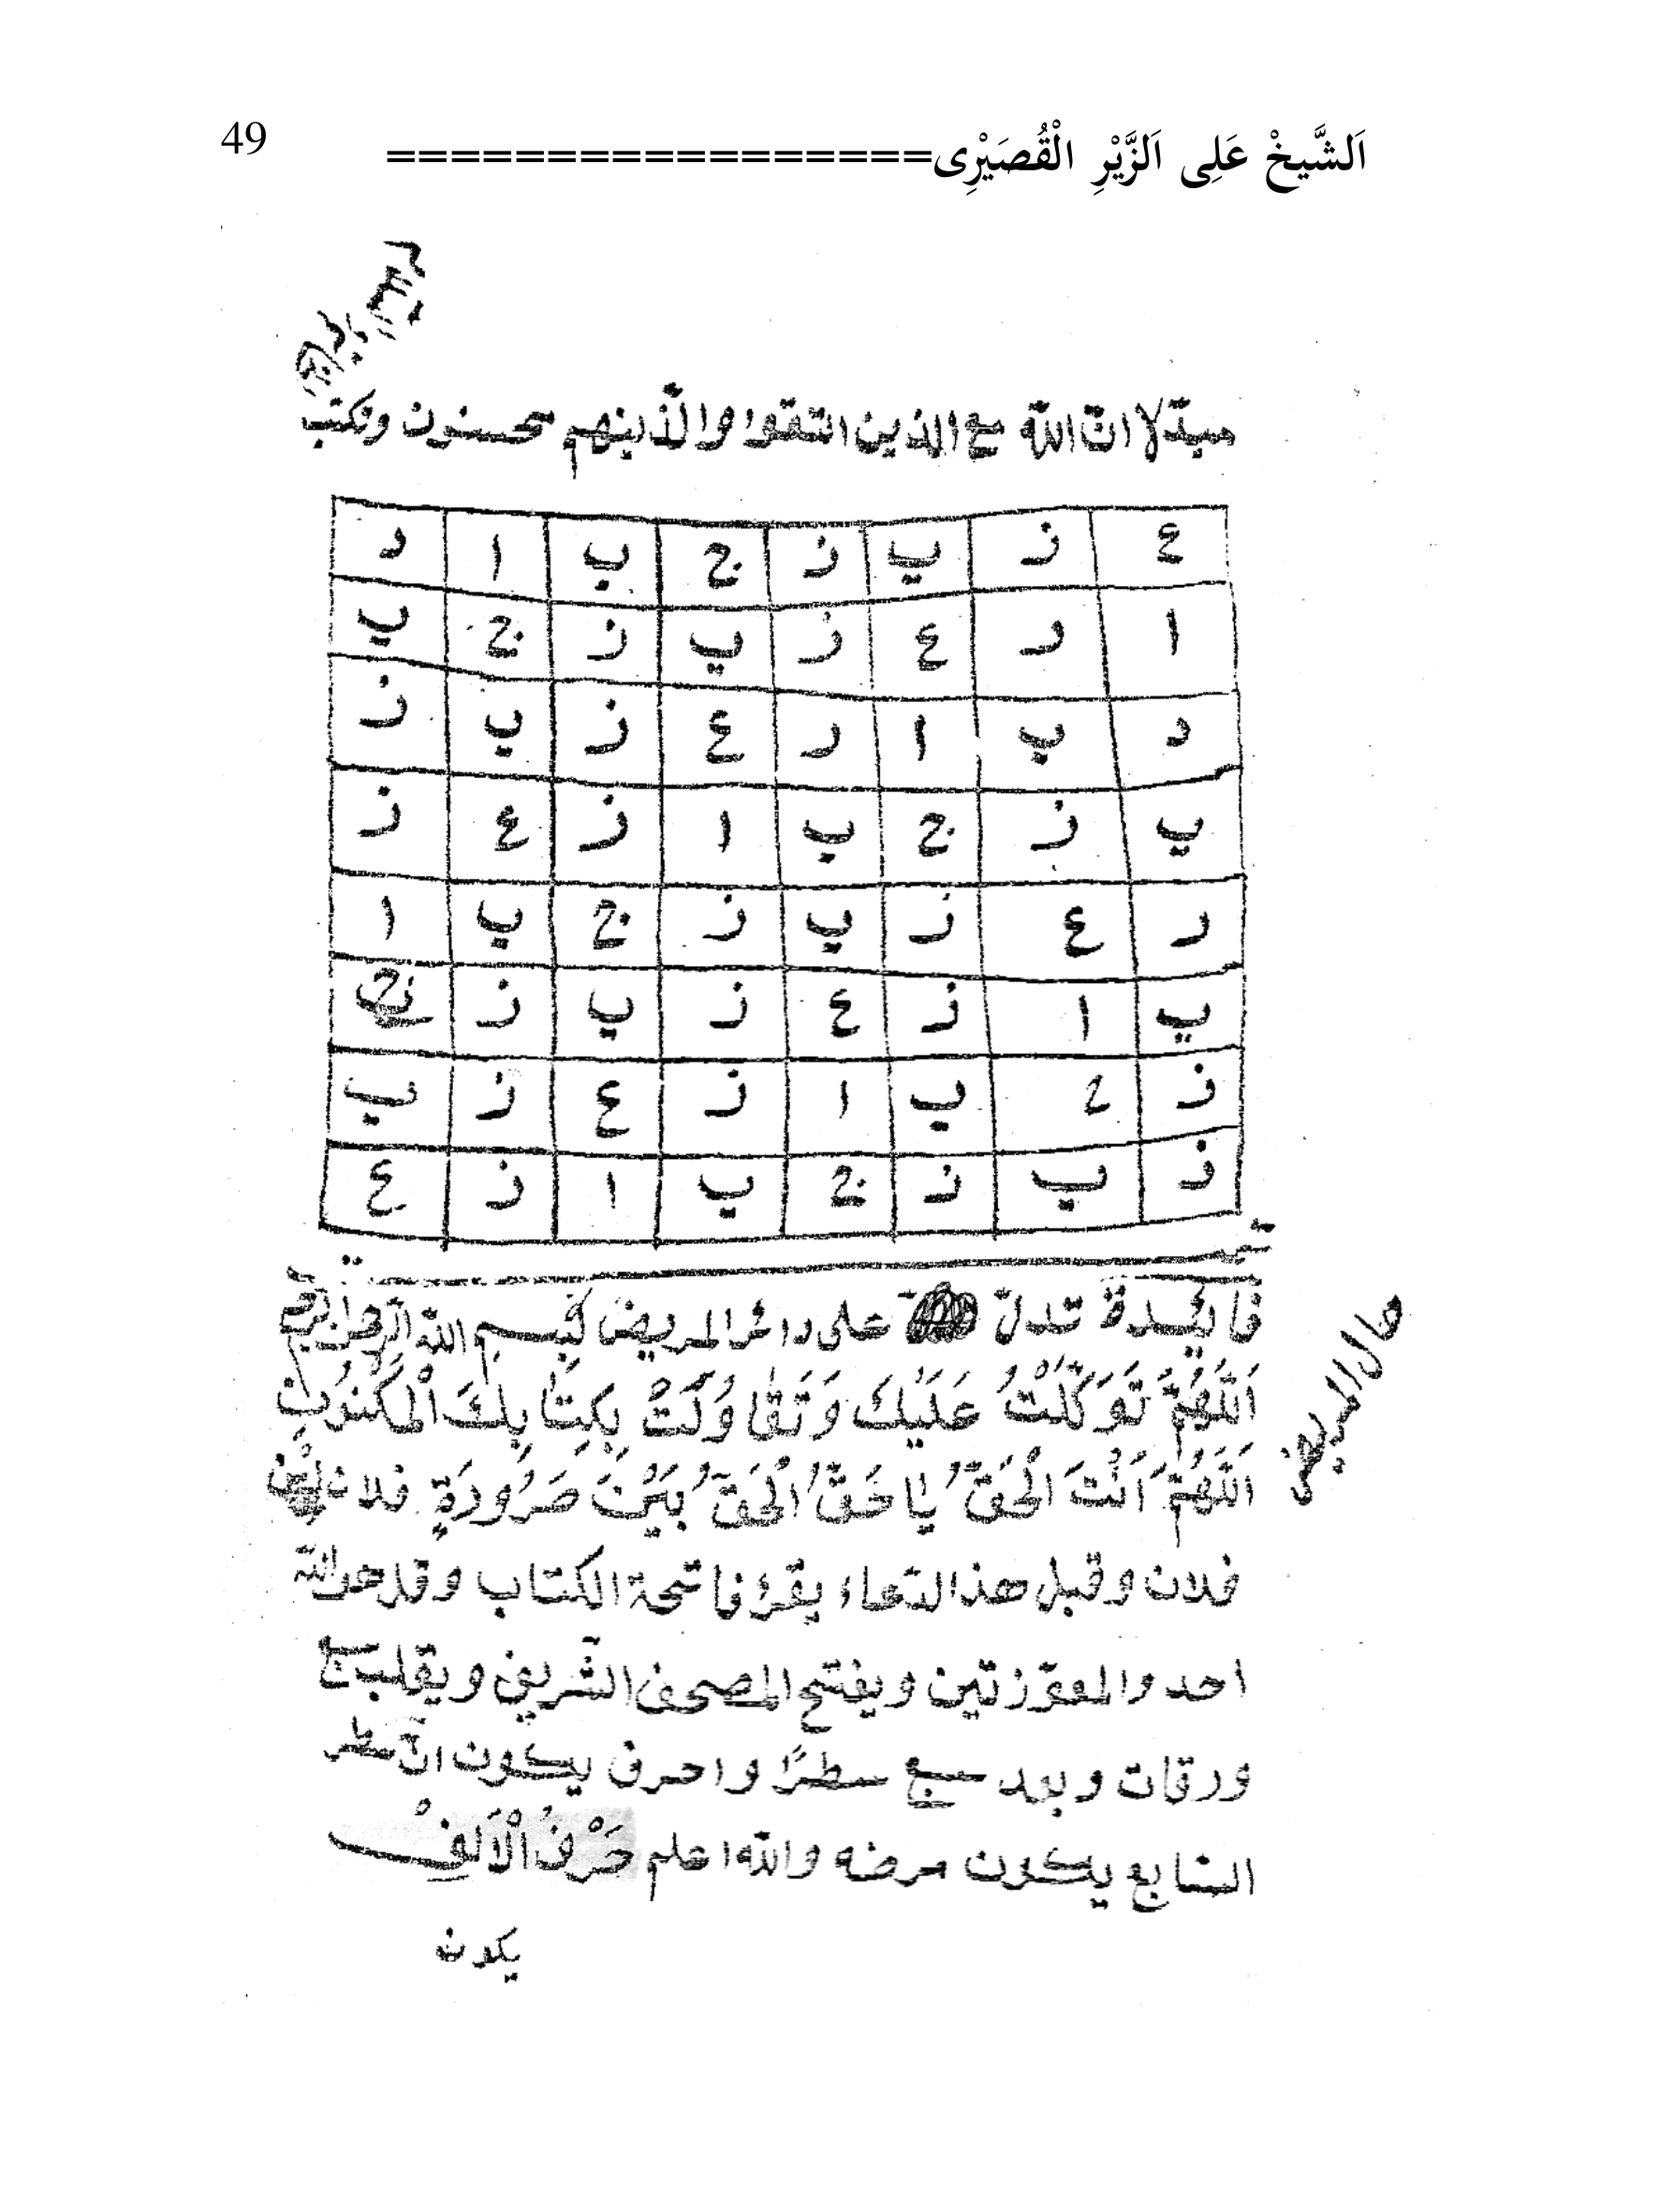 اَلشَّيخْ عَلِى اَلزَّيْرِ الْقُصَيْرِى================= 49
ان الله مع الذين التقوا والّذينهم محسنون وتكتب
ع ذ ب ذ ج ب ا د
ا د ع ذ ب ذ ج ب
د ب ا د ع ذ ب ذ
ب ذ ج ب ا ذ ع ذ
د ع ذ ب ذ ج ب ا
ب ا ذ ع ذ ب ذ ج
ذ ب ا ذ ع ذ ب
ذ ب ذ ج ب ا ذ ع
فائدة تدل على دائر المريض بسم الله الرحمن الرحيم
حال المريض
اَللَّهُمَّ تَوَكَّلْتُ عَلَيْكَ وَتَفَاوَلَتْ بِكِتَابِكَ الْمَكْنُوبِ
اَللَّهُمَّ اَنْتَ الْحَقُّ يَا حَقُّ الْحَقُّ بَيْنَ ضَرُورَةٍ فلان بن
فلان وقبل هذ الدّعاء يقرؤ فاتحة الكتاب وقل هو الله
احد والمعوّذتين ويفتح المصحف الشّريف ويقلب سبع
ورقات وبعد سبع سطرًا واحرف يكون انّ سطر
السّابع يكون مرضه والله اعلم حَرْفُ الْاَلِفْ
يكون